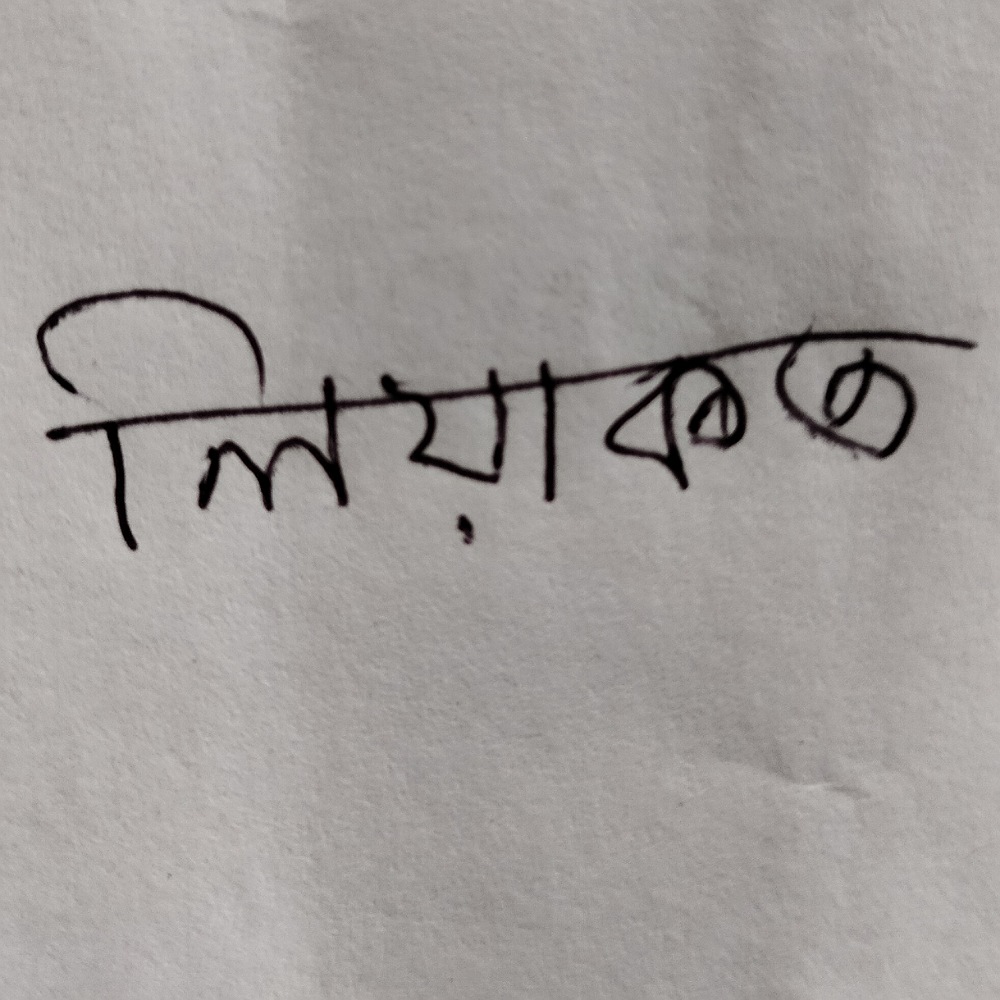 লিয়াকত